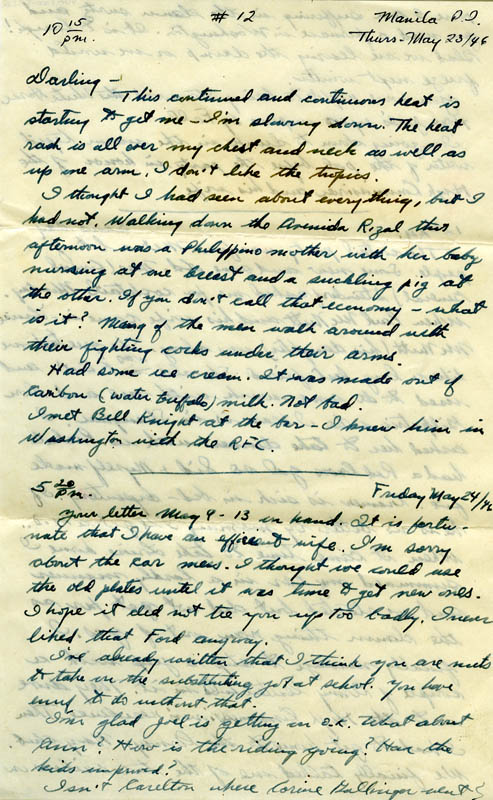 10 15/pm.
# 12
Manila P.I.
Thurs - May 23/46
Darling -
This continued and continuous heat is
starting to get me - I'm slowing down. The heat
rash is all over my chest and neck as well as
up one arm. I don't like the tropics.
I thought I had seen about everything, but I
had not. Walking down the Avenida Rizal this
afternoon was a Philippino mother with her baby
nursing at one breast and a suckling pig at
the other. If you don't call that economy - what
is it? Many of the men walk around with
their fighting cocks under their arms.
Had some ice cream. It was made out of
Caribou (water buffalo) milk. Not bad.
I met Bell Knight at the bar - I knew him in
Washington with the RFC.
5 20/pm.
Friday May 24/46
Your letter May 9 - 13 in hand. It is fortu-
nate that I have an efficient wife. I'm sorry
about the car mess. I thought we could use
the old plates until it was time to get new ones.
I hope it did not tie you up too badly. I never
liked that Ford anyway.
I've already written that I think you are nuts
to take on the substituting job at school. You have
enuf to do without that.
I'm glad Joel is getting on o.k. What about
Ann? How is the riding going? Have the
kids improved?
Isn't Carelton where Corine Ballinger went?